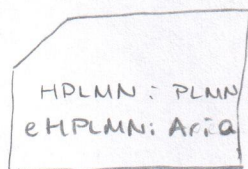 HPLMN: PLMN
eHPLMN: Aria